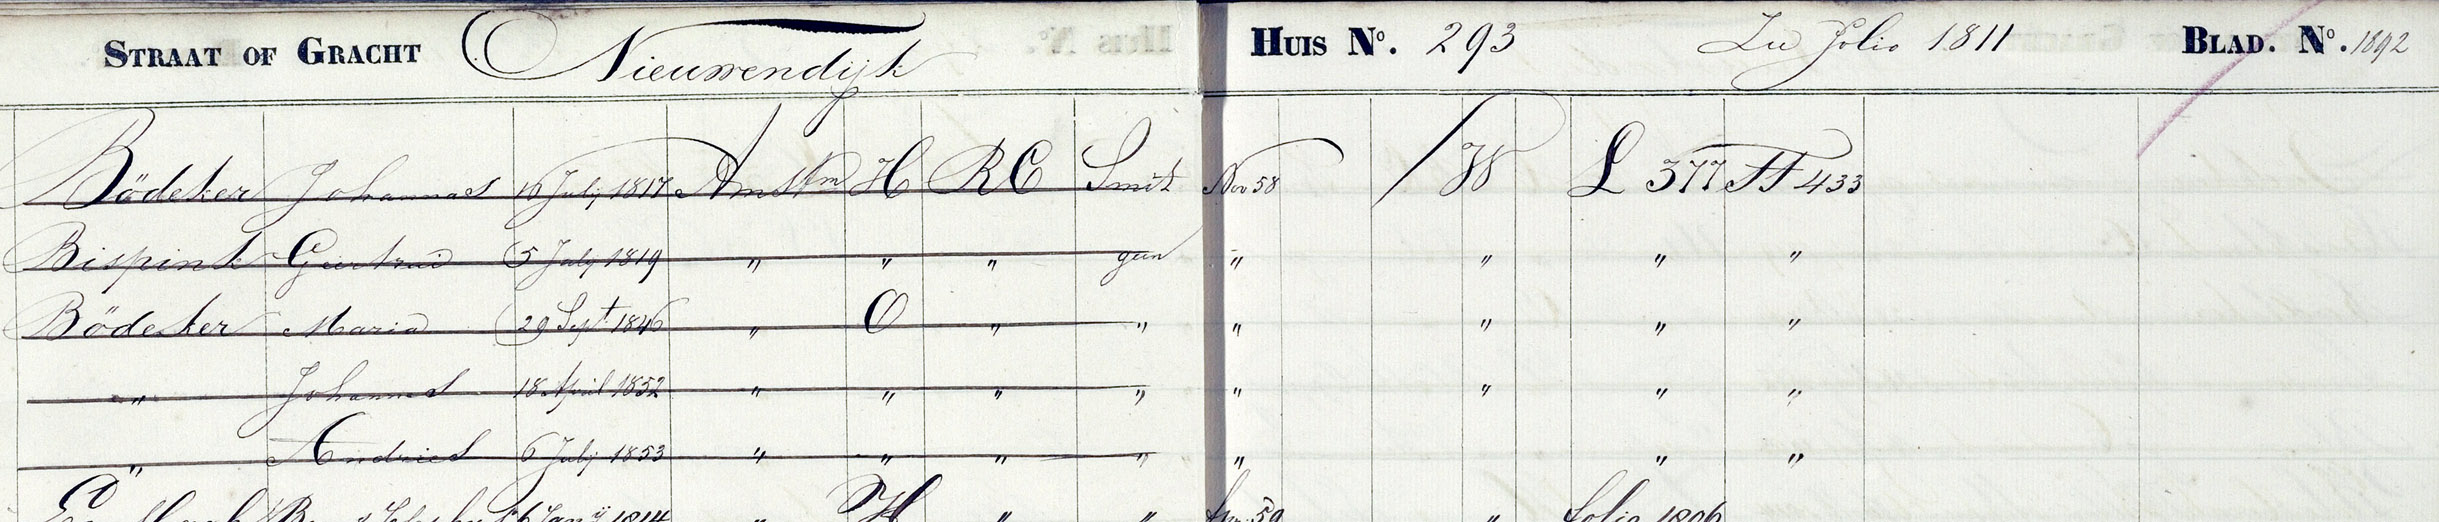 STRAAT OF GRACHT Nieuwendijk HUIS No. 293 Zie folio 1811 BLAD. No. 1892
Bödeker Johannes 16 July 1817 Amstm H RC Smit Nov 58 / W L 377 FF 433
Bispink Geertruid 5 July 1819 " " " geen " " " "
Bödeker Maria 29 Sept 1846 " O " " " " " "
" Johannes 18 April 1852 " " " " " " " "
" Andries 6 July 1853 " " " " " " "
6 Jany 1814 " H " " 59 " folio 1806